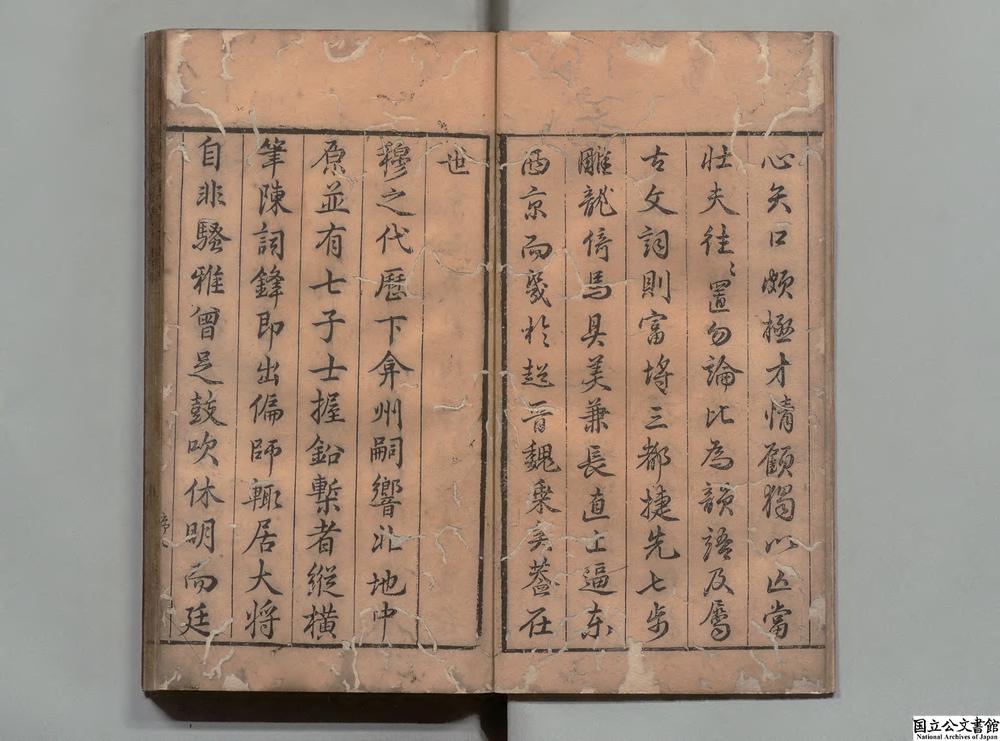 心矢口頗極才情顧獨以区當
壯夫往〻置勿論比為韻語及屬
古文詞則富埒三都捷先七步
雕龍倚馬具美兼長直上逼東
西京而幾於趙晉魏乘矣蓋在
世
穆之代歷下弇州嗣響北地中
原並有七子士握鉛槧者縱橫
筆陳詞鋒即出偏師輒居大將
自非騷雅曾足鼓吹休明而廷
国立公文書館
National Archives of Japan